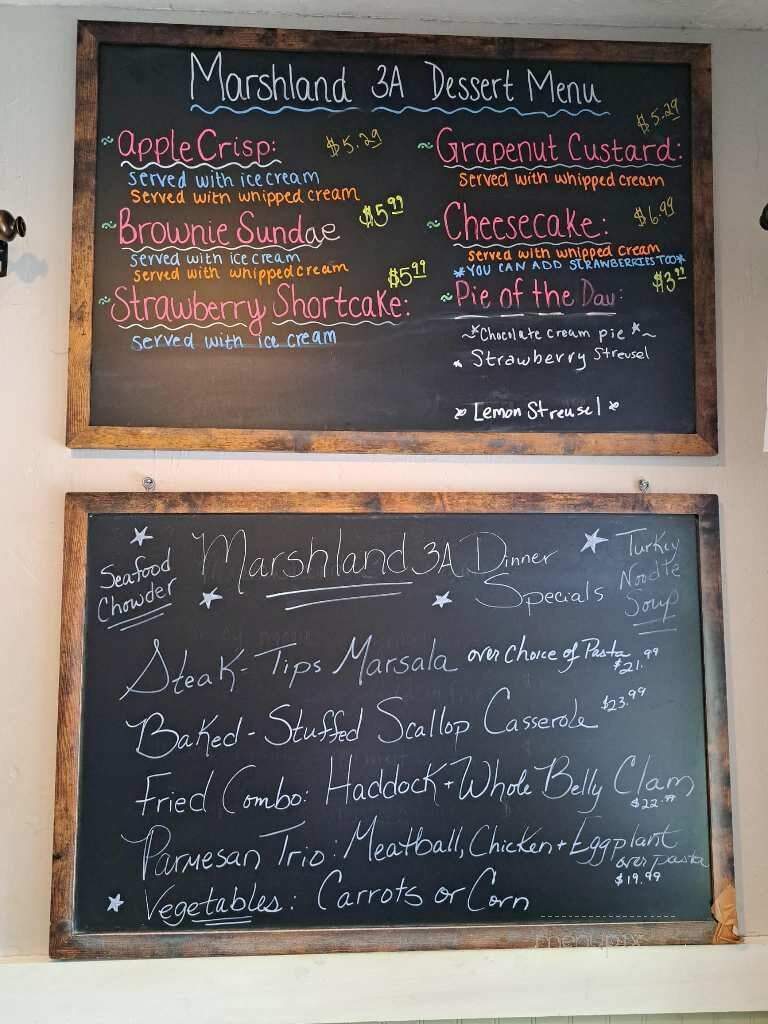 Marshland 3A Dessert Menu
~Apple Crisp: $5.29
served with ice cream
served with whipped cream
~Brownie Sundae $5.99
served with ice cream
served with whipped cream
~Strawberry Shortcake: $5.99
served with ice cream
~Grapenut Custard: $5.29
served with whipped cream
~Cheesecake: $6.99
served with whipped cream
*YOU CAN ADD STRAWBERRIES TOO*
~Pie of the Day: $3.99
~*Chocolate cream pie*~
* Strawberry Streusel
* Lemon Streusel *
Seafood
Chowder
Marshland 3A Dinner
Specials
Turkey
Noodle
Soup
Steak-Tips Marsala over choice of Pasta
$21.99
Baked-Stuffed Scallop Casserole $23.99
Fried Combo: Haddock + Whole Belly Clam
$22.99
Parmesan Trio: Meatball, Chicken + Eggplant
over pasta
$19.99
Vegetables: Carrots or Corn
menupix